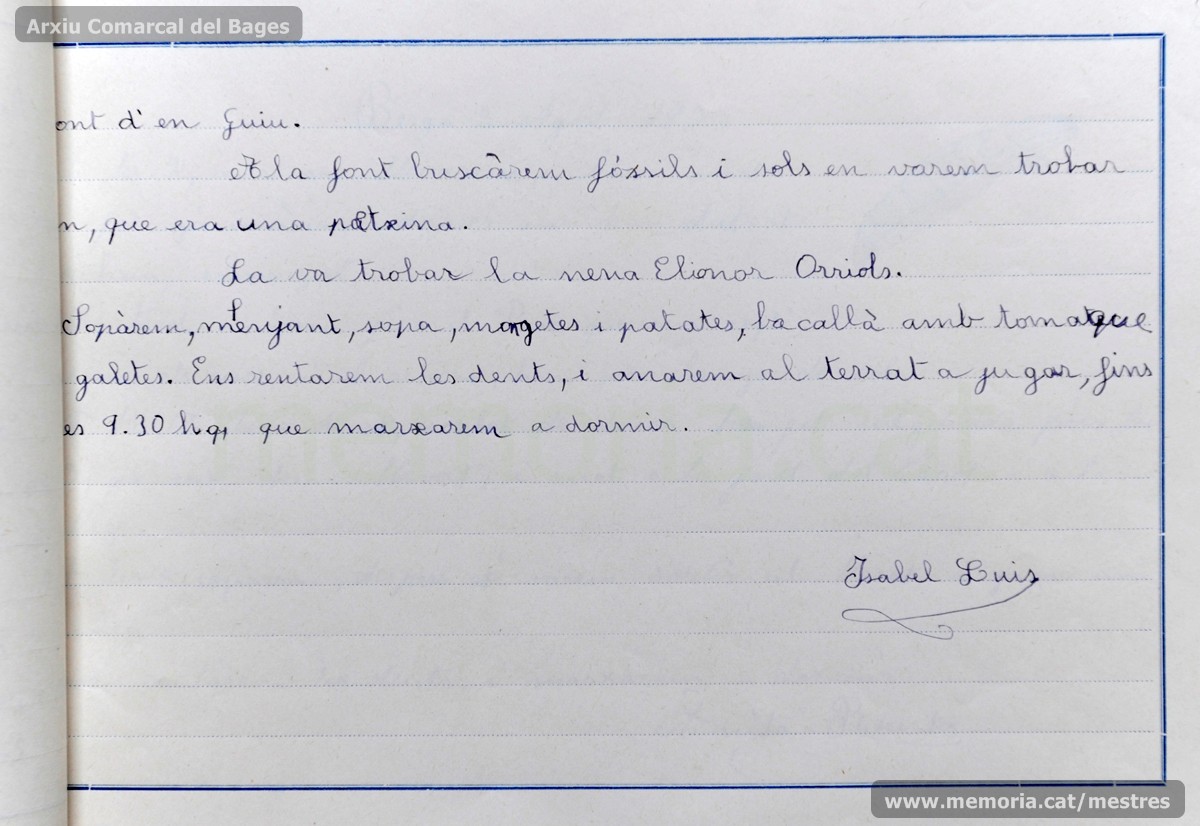 Arxiu Comarcal del Bages
ont d'en Guiu.
A la font buscàrem fóssils i sols en varem trobar
n, que era una patxina.
La va trobar la nena Elionor Orriols.
Sopàrem, menjant, sopa, mongetes i patates, bacallà amb tomàque
galetes. Ens rentarem les dents, i anarem al terrat a jugar, fins
es 9.30 h, que marxarem a dormir.
Isabel Luis
memoria.cat
www.memoria.cat/mestres